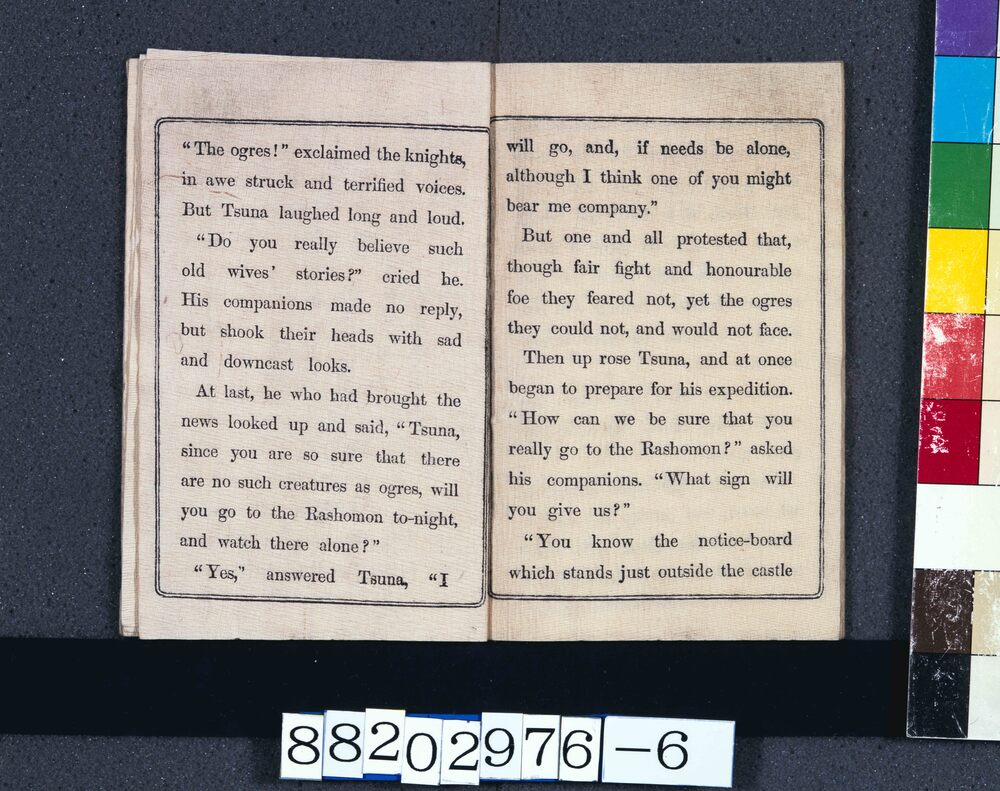 “The ogres!” exclaimed the knights,
in awe struck and terrified voices.
But Tsuna laughed long and loud.
“Do you really believe such
old wives’ stories?” cried he.
His companions made no reply,
but shook their heads with sad
and downcast looks.
At last, he who had brought the
news looked up and said, “Tsuna,
since you are so sure that there
are no such creatures as ogres, will
you go to the Rashomon to-night,
and watch there alone?”
“Yes,” answered Tsuna, “I
will go, and, if needs be alone,
although I think one of you might
bear me company.”
But one and all protested that,
though fair fight and honourable
foe they feared not, yet the ogres
they could not, and would not face.
Then up rose Tsuna, and at once
began to prepare for his expedition.
“How can we be sure that you
really go to the Rashomon?” asked
his companions. “What sign will
you give us?”
“You know the notice-board
which stands just outside the castle
88202976-6